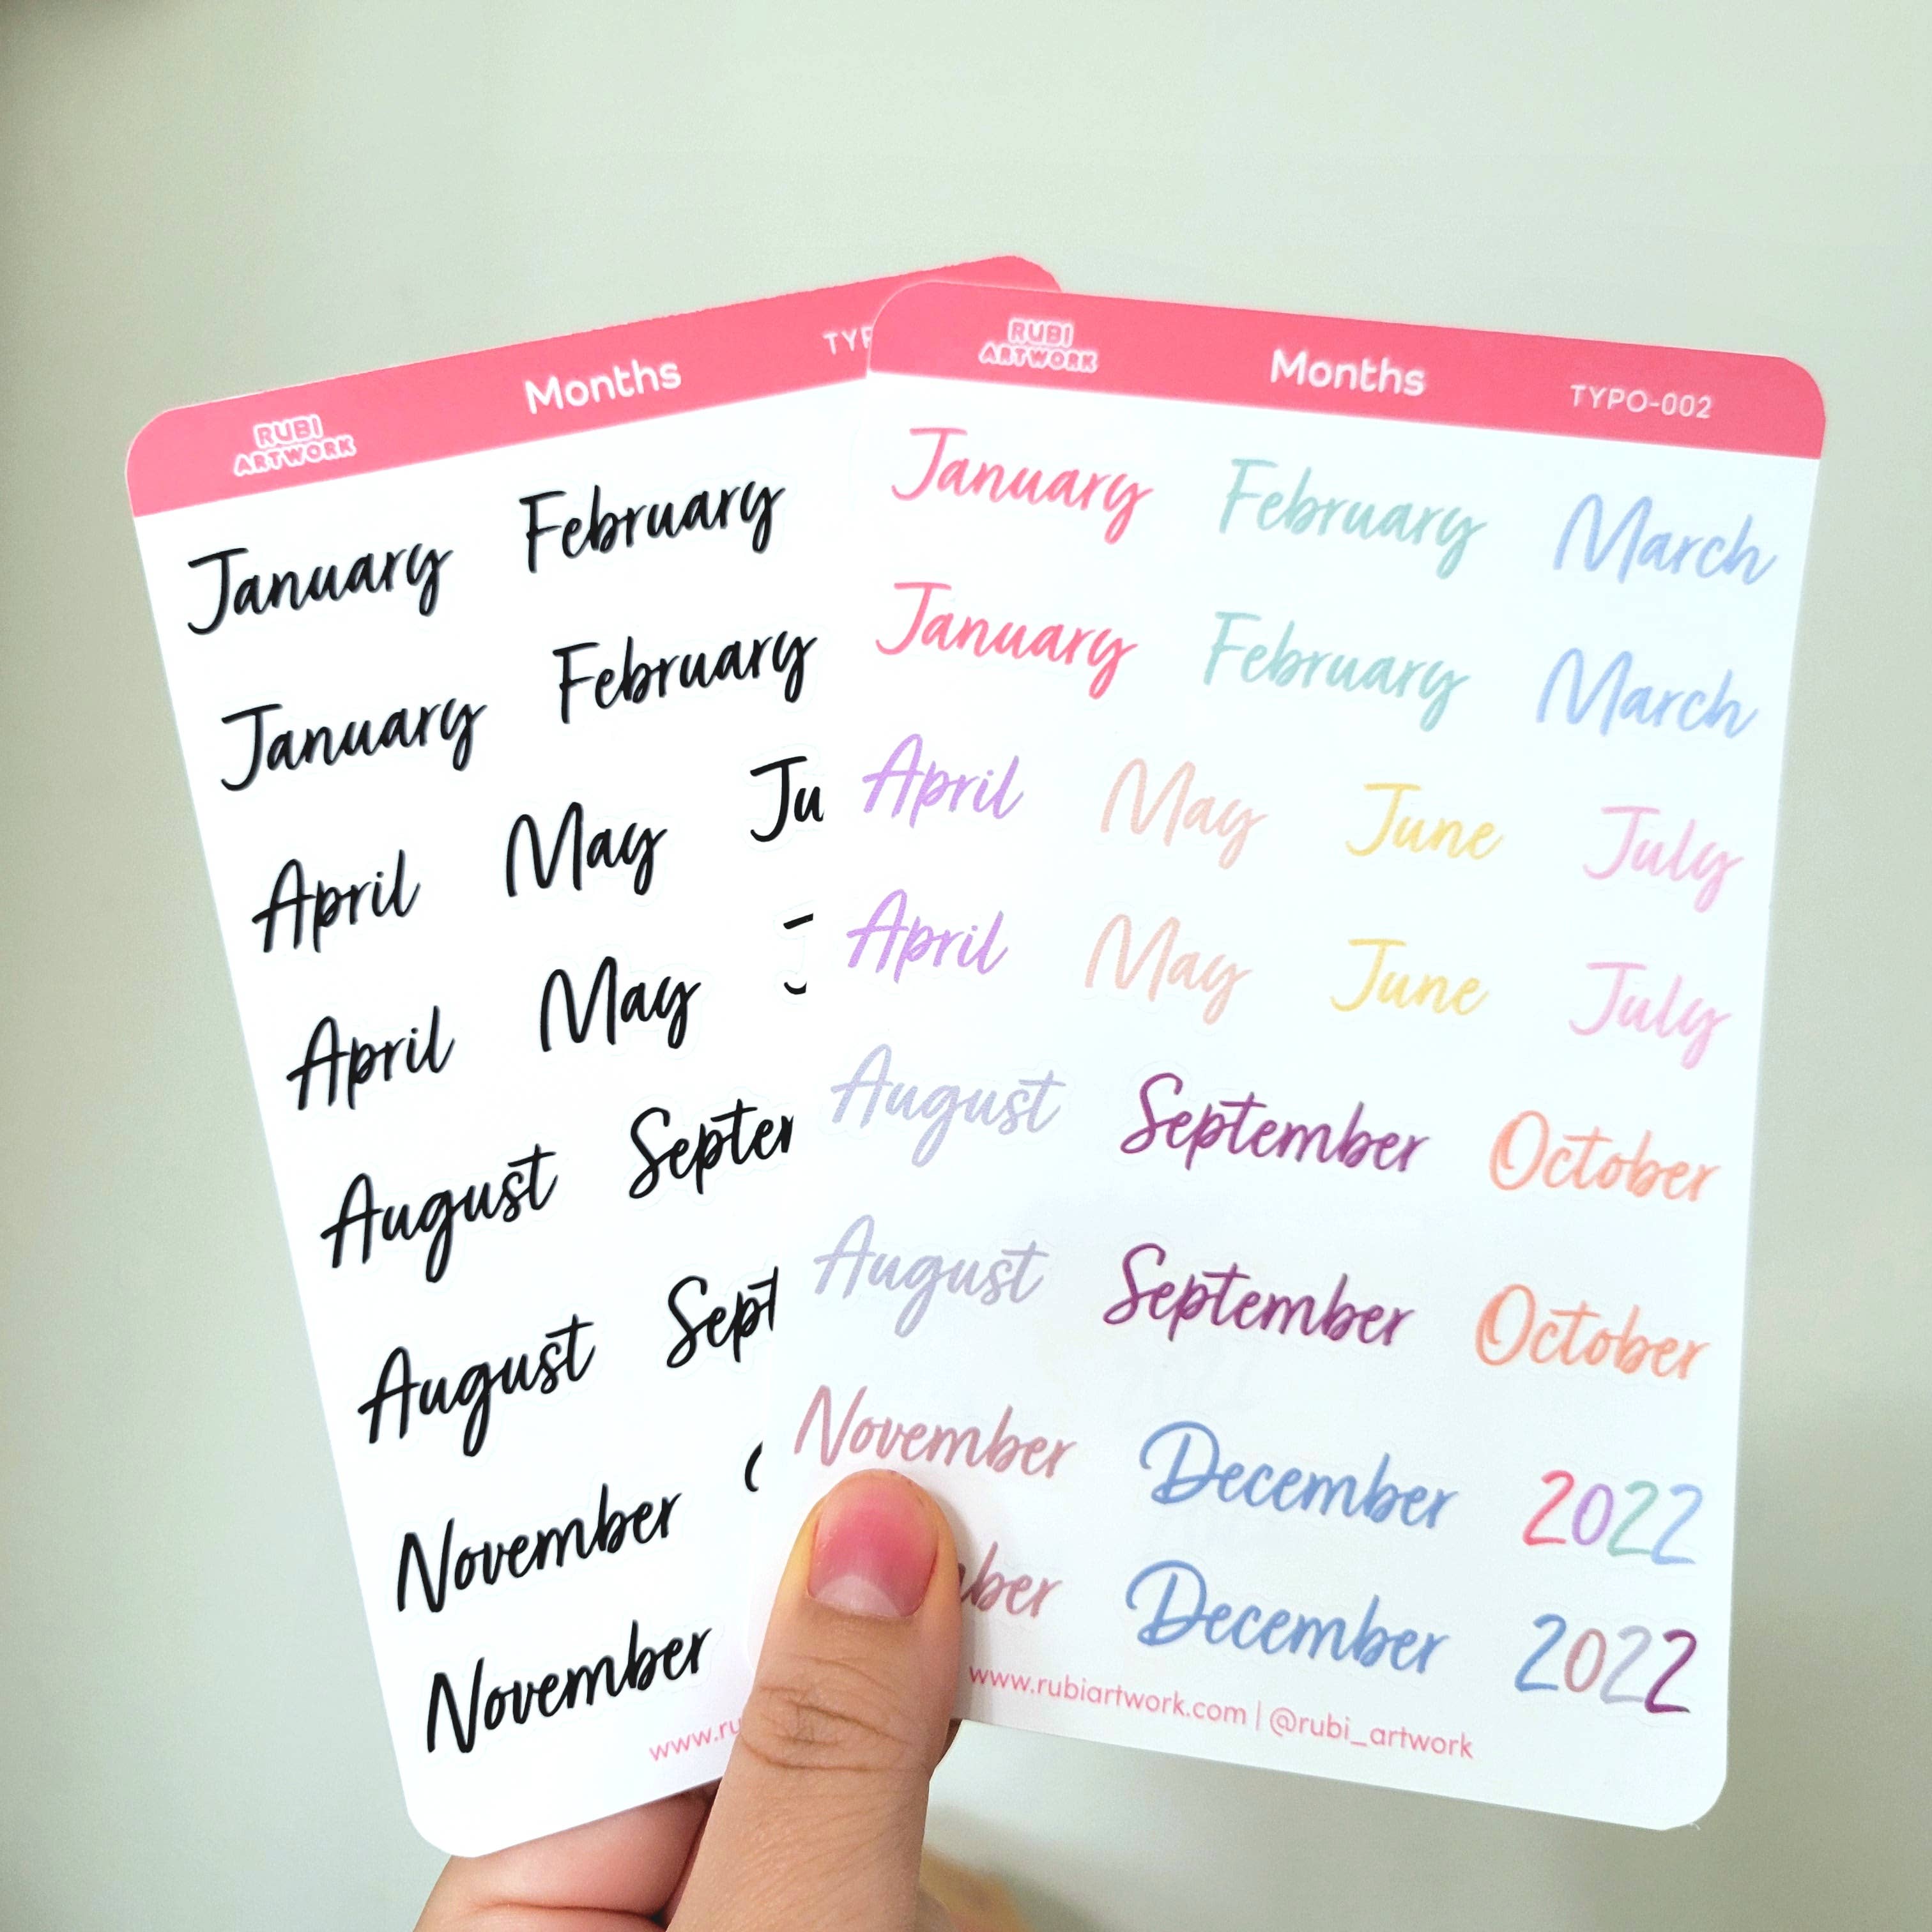 RUBI
ARTWORK
Months
January February
January February
April May
April May
August
August
November
November
RUBI
ARTWORK
Months
TYPO-002
January February March
January February March
April May June July
April May June July
August September October
August September October
November December 2022
December 2022
www.rubiartwork.com | @rubi_artwork